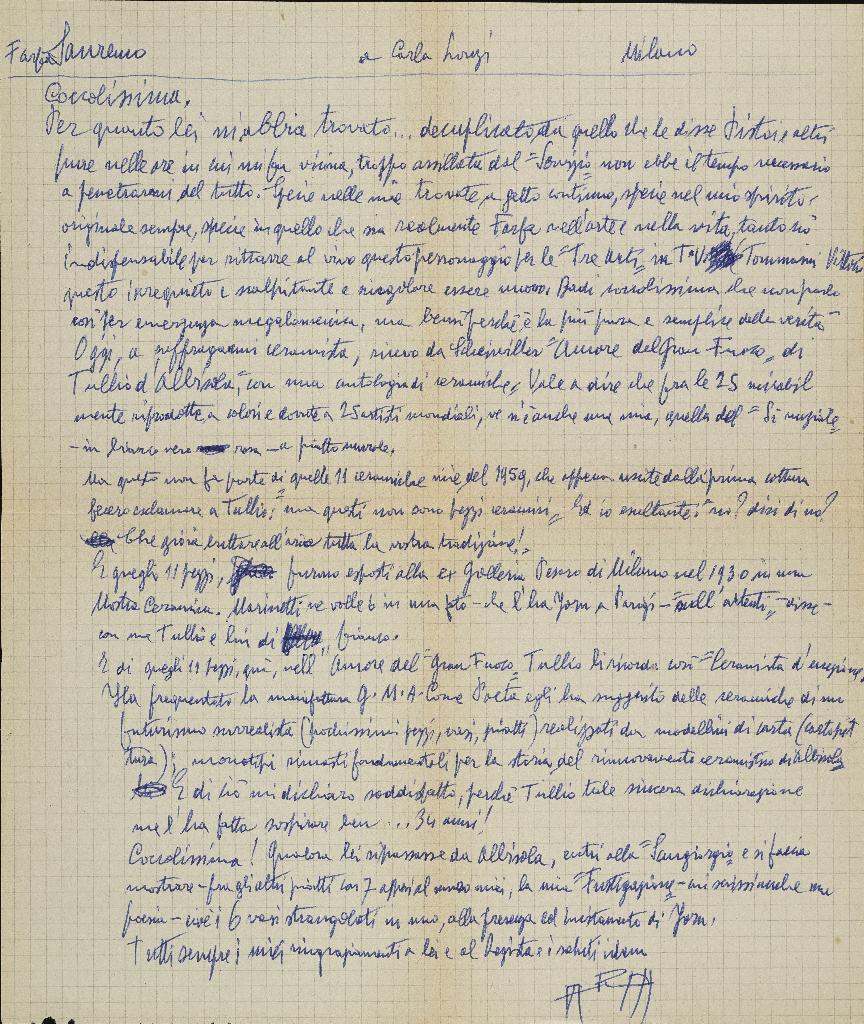 Farfa Sanremo a Carla Lonzi Milano
Coccolissima,
Per quanto lei m'abbia trovato... decuplicato da quello che le disse Pistoi e altri
pure nelle ore in cui mi fu vicina, troppo assillata dal "Servizio" non ebbe il tempo necessario
a penetrarmi del tutto. Specie nelle mie trovate, a getto continuo, specie nel mio spirito,
originale sempre, specie in quello che sia realmente Farfa nell'arte e nella vita, tanto
indispensabile per ritrarre al vivo questo personaggio per le "Tre Arti" in T.V. Tommasini Vittorio
questo irrequieto e scalpitante e singolare essere umano. Badi coccolissima che non parlo
così per emergenza megalomanica, ma bensì perché è la più pura e semplice delle verità
Oggi, a suffragarmi ceramista, ricevo da Scheiwiller "Amore del Gran Fuoco" di
Tullio d'Albisola "con una antologia di ceramiche". Vale a dire che fra le 25 mirabil
mente riprodotte a colori e dovute a 25 artisti mondiali, ve n'è anche una mia, quella del "Si
- in bianco nero rosa - a piatto murale.
Ma questo non fa parte di quelle 11 ceramiche mie, del 1959, che appena uscite dalla prima cottura
fecero esclamare a Tullio: "ma questi non sono pezzi ceramici". Ed io esultante: "no? dici di no?
Che gioia buttare all'aria tutta la vostra tradizione!"
E quegli 11 pezzi, furono esposti alla ex Galleria Pesaro di Milano nel 1930 in una
Mostra Ceramica. Marinetti ne volle 6 in una foto - che l'ha Jorn a Parigi - "sull'attenti" - disse -
con me Tullio e lui di fianco.
E di quegli 11 pezzi, qui, nell' "Amore del Gran Fuoco" Tullio li ricorda così "Ceramista d'eccezione,
Ha frequentato la manifattura G.M.A. Come Poeta egli ha suggerito delle ceramiche di un
futurismo surrealista (pochissimi pezzi, vasi, piatti) realizzati da modellini di carta (cartopit
tura); monotipi rimasti fondamentali per la storia del rinnovamento ceramistico di Albisola"
E di ciò mi dichiaro soddisfatto, perché Tullio tale sincera dichiarazione
me l'ha fatta sospirare ben ... 34 anni!
Coccolissima! Qualora lei ripassasse da Albisola, entri alla "Sangiorgio" e si faccia
mostrare - fra gli altri piatti con 7 appesi al muro miei, la mia "Fustigazione" - ci scrissi anche una
poesia - cioè i 6 vasi strangolati in uno, alla presenza ed incitamento di Jorn.
Tutti sempre i miei ringraziamenti a lei e al Regista e i saluti idem